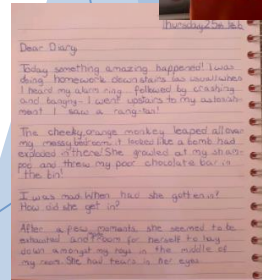 Thursday 25th Feb
Dear Diary,
Today something amazing happened! I was
doing homework downstairs (as usual) when
I heard my alarm ring followed by crashing
and banging. I went upstairs to my astonish-
ment I saw a rang-tan!
The cheeky, orange monkey leaped all over
my messy bedroom it looked like a bomb had
exploded in there! She growled at my sham-
poo and threw my poor chocolate bar in
the bin!
I was mad. When had she gotten in?
How did she get in?
After a few moments, she seemed to be
exhausted and room for herself to lay
down amongst my toys in the middle of
my room. She had tears in her eyes